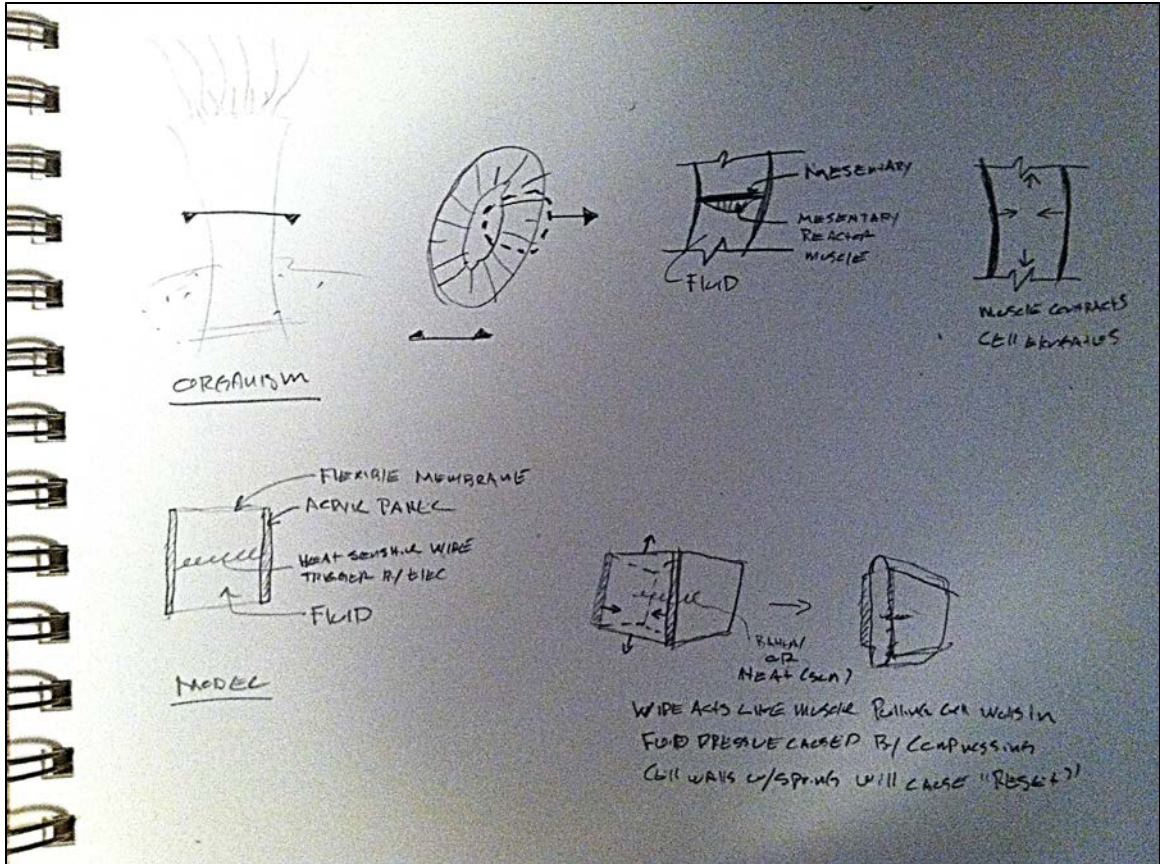 ORGANISM
MESENTARY
MESENTARY
REACTOR
MUSCLE
FLUID
MUSCLE CONTRACTS
CELL ELONGATES
FLEXIBLE MEMBRANE
ACRYLIC PANEL
HEAT SENSITIVE WIRE
TRIGGER BY ELEC
FLUID
MODEL
OR
HEAT (SUN)
WIRE ACTS LIKE MUSCLE PULLING CELL WALLS IN
FLUID PRESSURE CAUSED BY COMPRESSING
CELL WALLS W/SPRING WILL CAUSE "RESET"